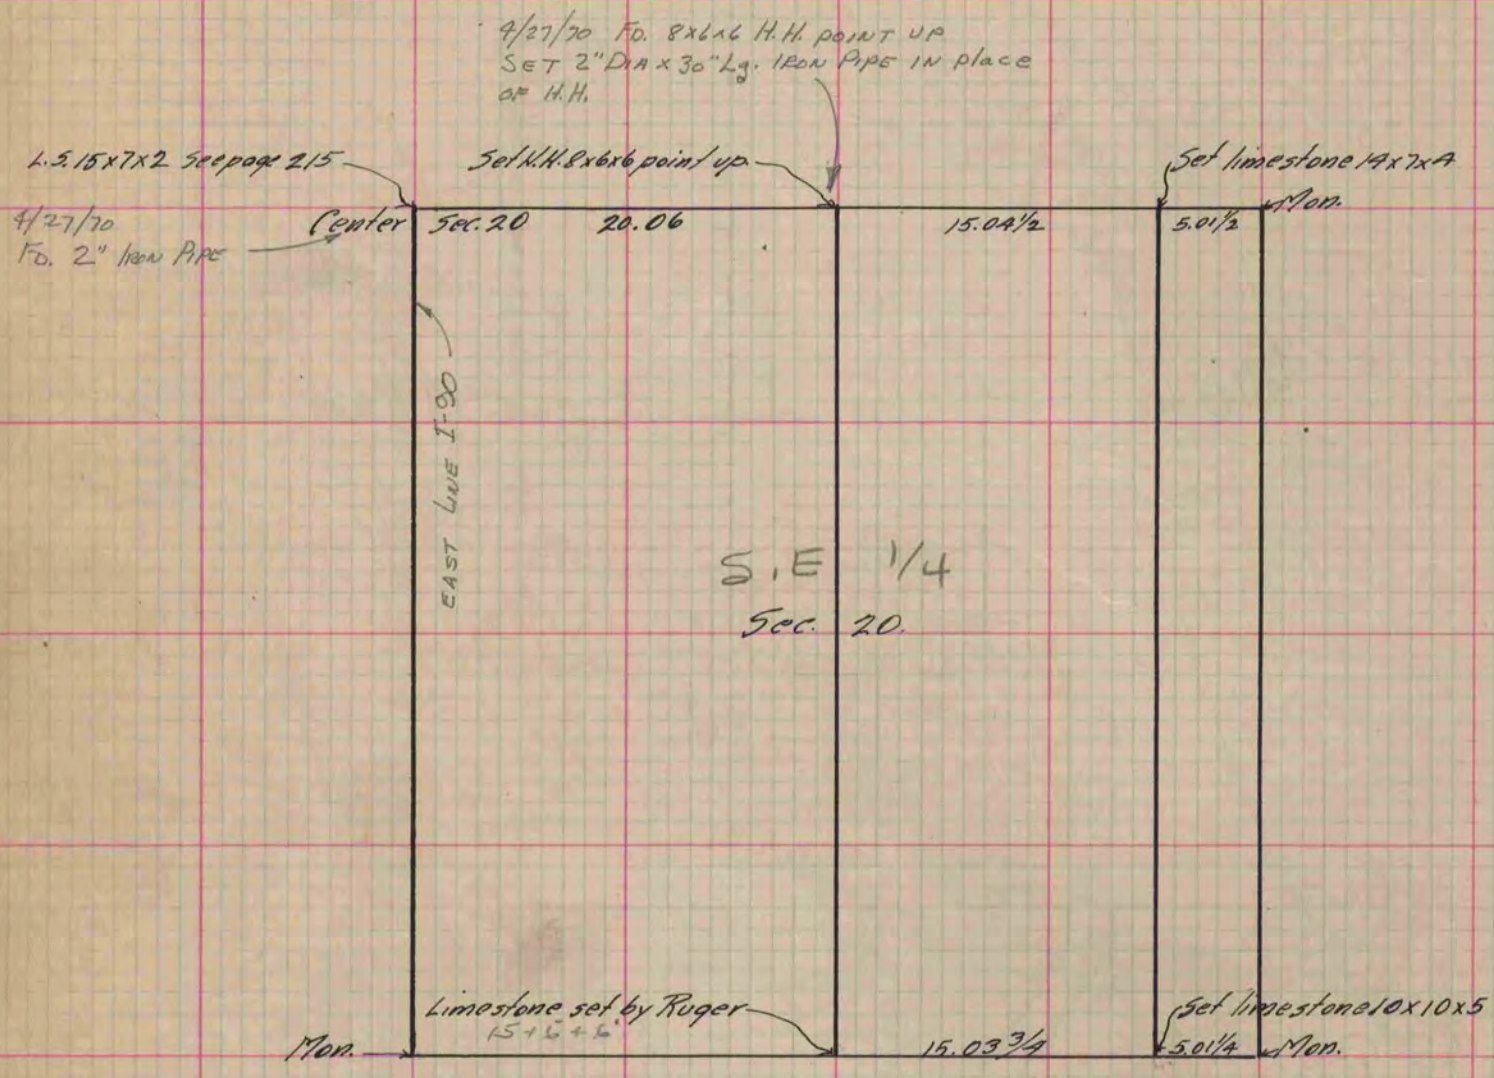 4/27/70 FD. 8x6x6 H.H. POINT UP
SET 2" DIA x 30" Lg. IRON PIPE IN place
OF H.H.
L.S. 15x7x2 See page 215
Set H.H. 8x6x6 point up
Set limestone 14x7x4
Mon.
4/27/70
FD. 2" IRON PIPE
Center
Sec. 20
20.06
15.04 1/2
5.01 1/2
EAST LINE I-90
S.E 1/4
Sec. 20.
Limestone set by Ruger
Set limestone 10x10x5
Mon.
15.03 3/4
5.01 1/4
Mon.